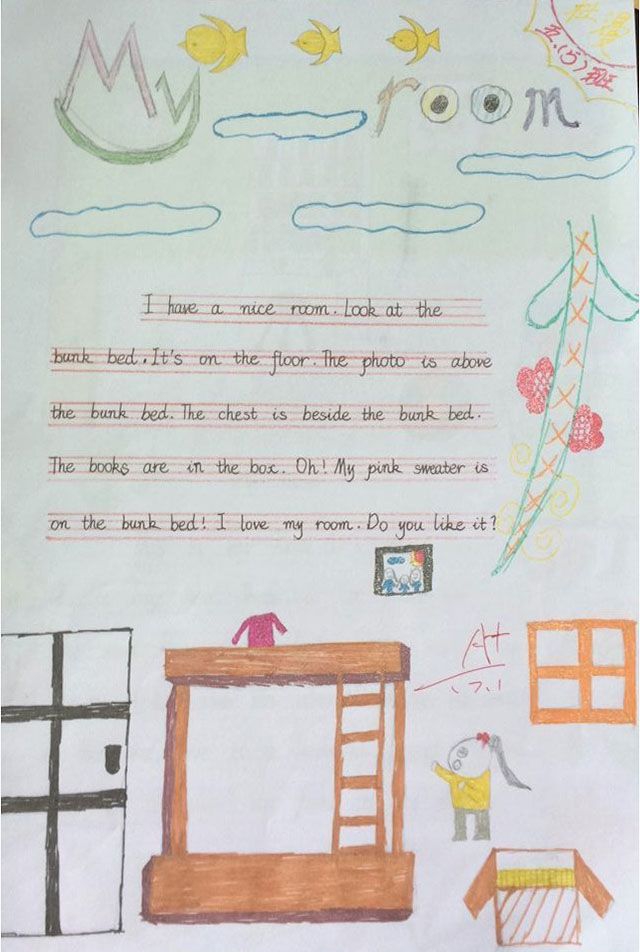 My room
五.(5)班
I have a nice room. Look at the
bunk bed. It's on the floor. The photo is above
the bunk bed. The chest is beside the bunk bed.
The books are in the box. Oh! My pink sweater is
on the bunk bed! I love my room. Do you like it?
A+